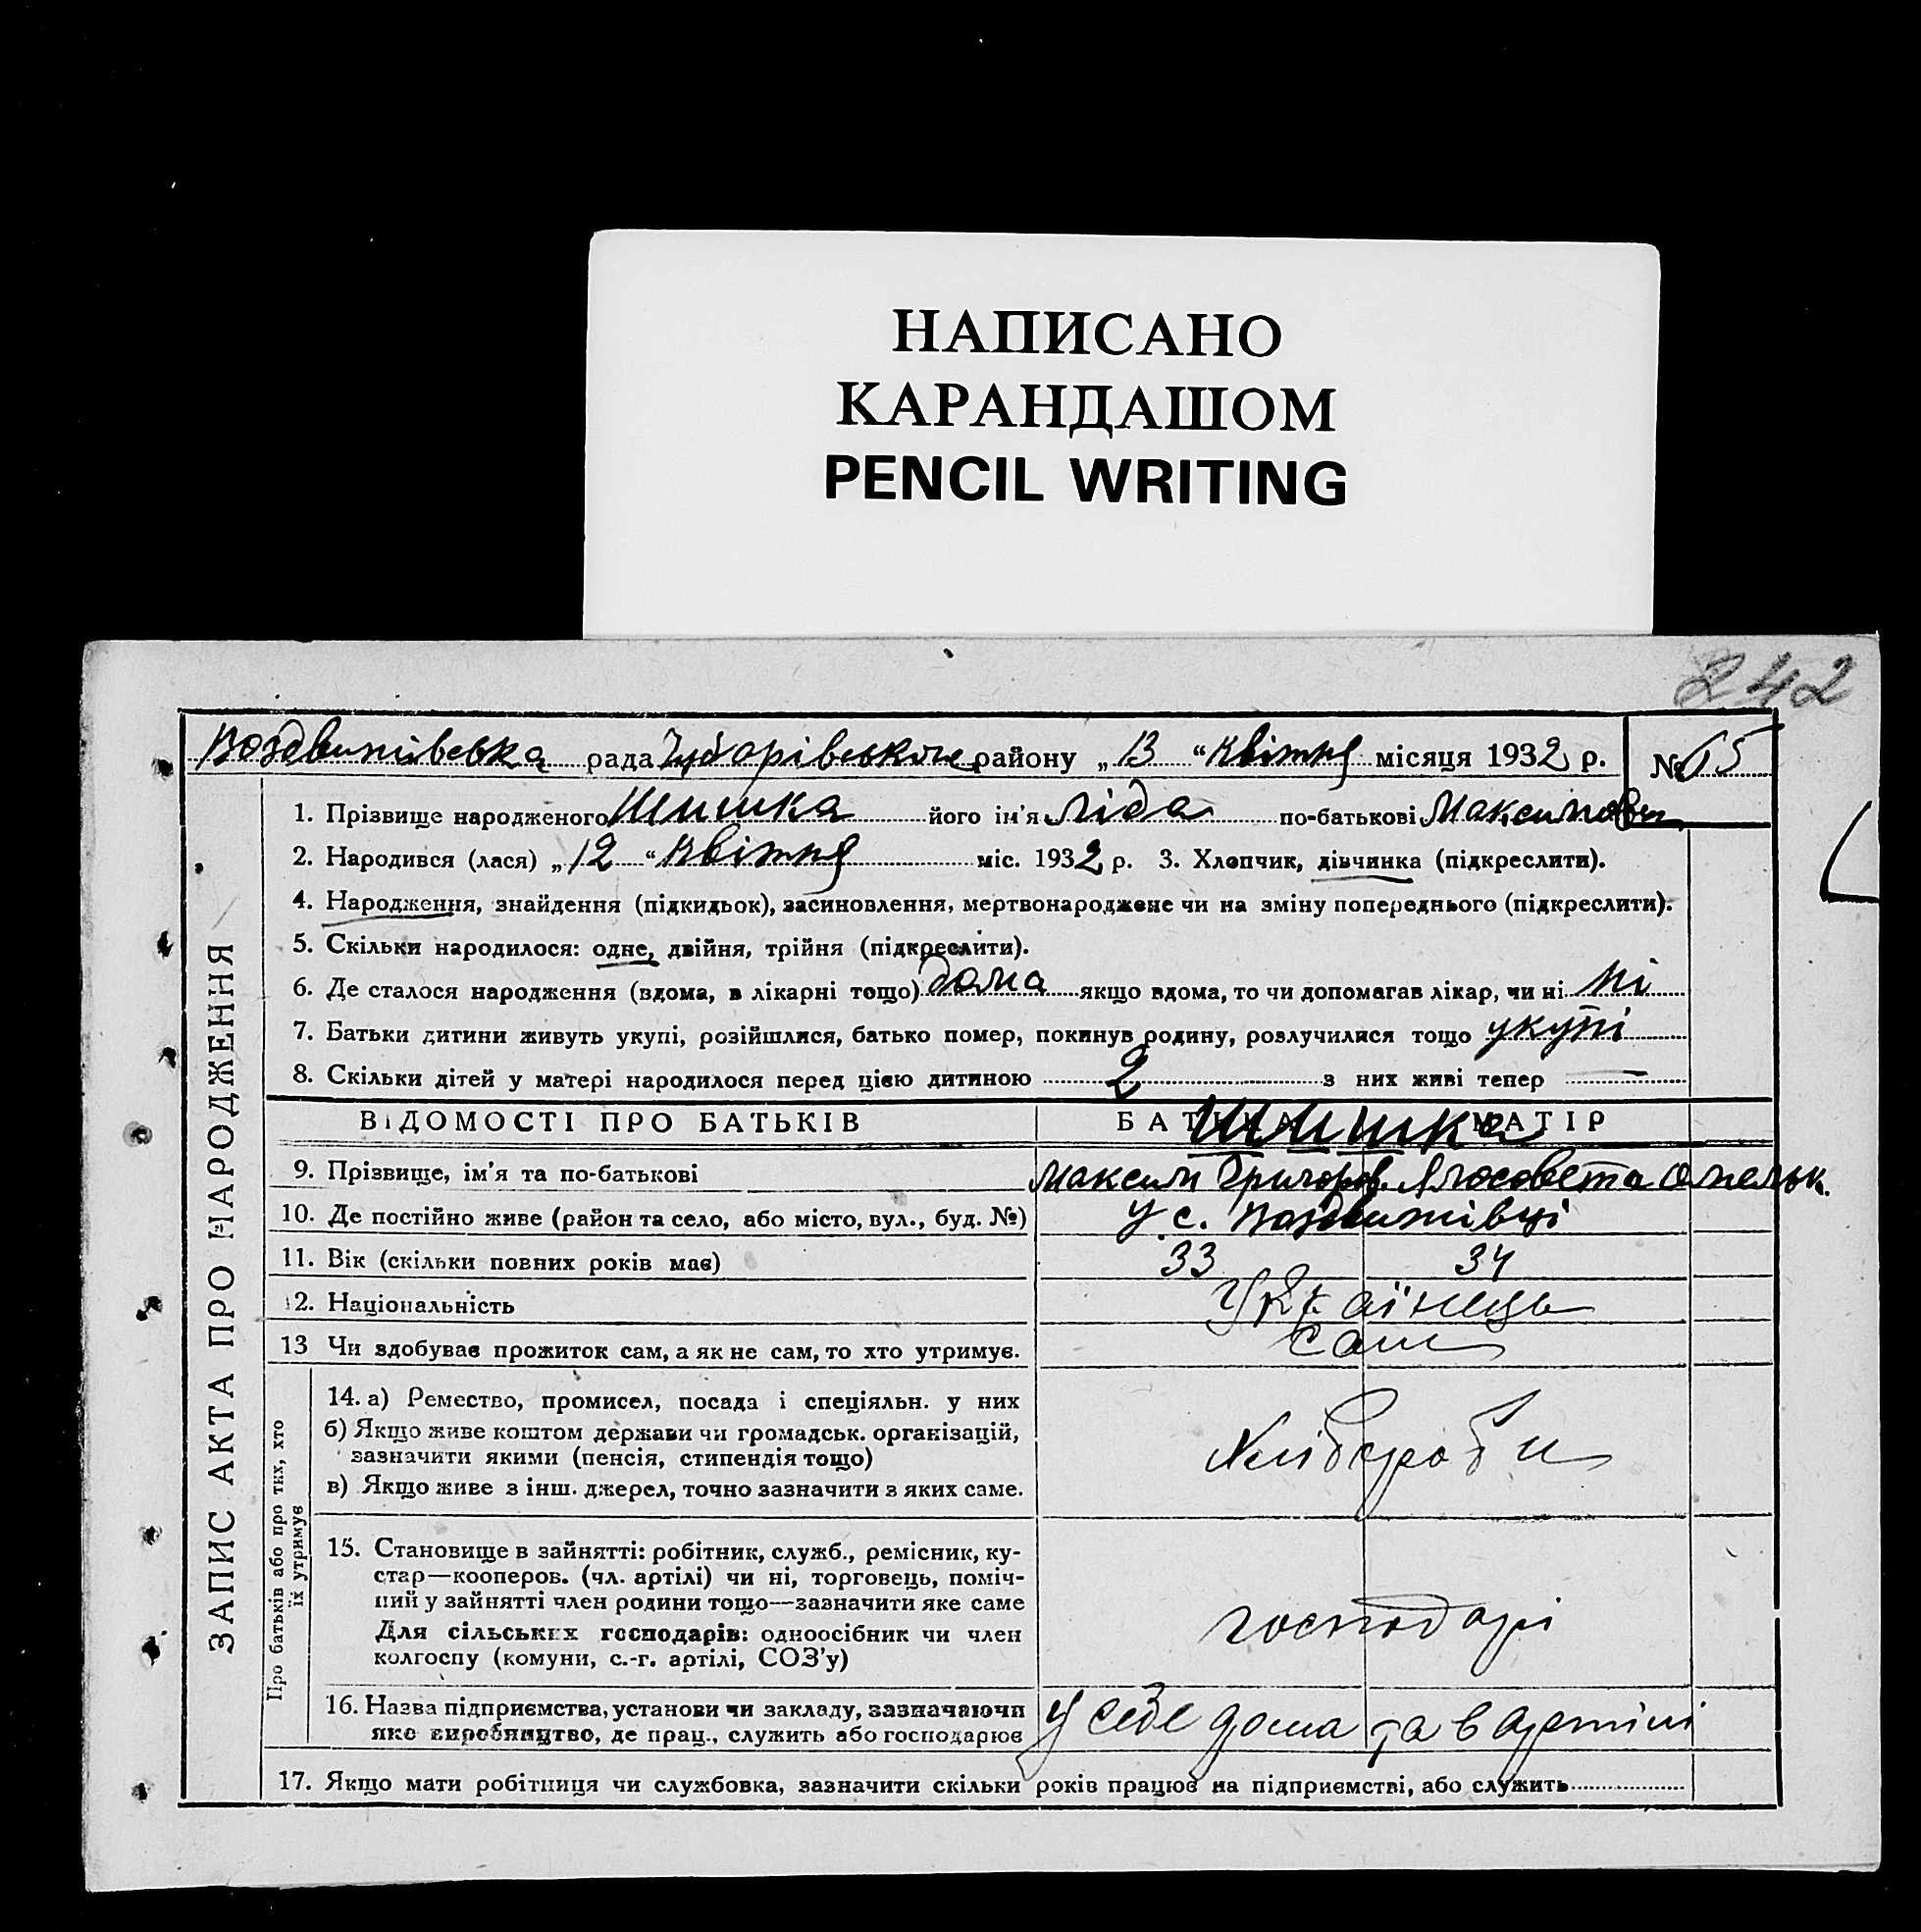 НАПИСАНО
КАРАНДАШОМ
PENCIL WRITING
242
Воздвижівська рада Чубарівського району „13“ Квітня місяця 1932 р. № 65
1. Прізвище народженого Шишка його ім'я Ліда по-батькові Максимовн
2. Народився (лася) „12“ Квітня міс. 1932 р. 3. Хлопчик, дівчинка (підкреслити).
4. Народження, знайдення (підкидьок), засиновлення, мертвонароджене чи на зміну попереднього (підкреслити).
5. Скільки народилося: одне, двійня, трійня (підкреслити).
6. Де сталося народження (вдома, в лікарні тощо) дома якщо вдома, то чи допомагав лікар, чи ні ні
7. Батьки дитини живуть укупі, розійшлися, батько помер, покинув родину, розлучилися тощо укупі
8. Скільки дітей у матері народилося перед цією дитиною 2 з них живі тепер —
ВІДОМОСТІ ПРО БАТЬКІВ БАТЬКА МАТІР
Шишка
9. Прізвище, ім'я та по-батькові Максим Григоров. Ялосовета Омельк.
10. Де постійно живе (район та село, або місто, вул., буд. №) У с. Воздвижівці
11. Вік (скільки повних років має) 33 34
12. Національність Українець
13 Чи здобуває прожиток сам, а як не сам, то хто утримує. сам
14. а) Ремество, промисел, посада і спеціяльн. у них
б) Якщо живе коштом держави чи громадськ. організацій,
зазначити якими (пенсія, стипендія тощо)
Хлібороби
в) Якщо живе з інш. джерел, точно зазначити з яких саме.
15. Становище в зайнятті: робітник, служб., ремісник, ку-
стар—кооперов. (чл. артілі) чи ні, торговець, поміч-
ний у зайнятті член родини тощо—зазначити яке саме
господарі
Для сільських господарів: одноосібник чи член
колгоспу (комуни, с.-г. артілі, СОЗ'у)
16. Назва підприємства, установи чи закладу, зазначаючи
яке виробництво, де прац., служить або господарює
у себе дома та в артілі
17. Якщо мати робітниця чи службовка, зазначити скільки років працює на підприємстві, або служить
ЗАПИС АКТА ПРО НАРОДЖЕННЯ
Про батьків або про тих, хто
їх утримує